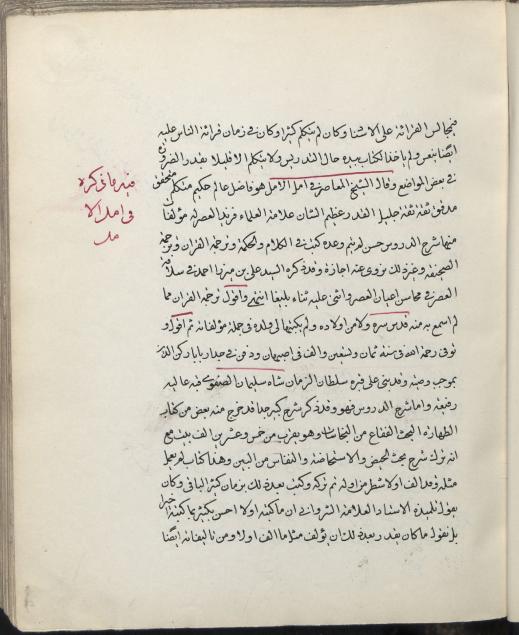 في مجالس القرائة على الاستاد وكان لم يتكلم كثيرا وكان في زمان قرائة الناس عليه
ايضا ينعس ولم ياخذ الكتاب بيده حال التدريس ولا يتكلم الا قليلا بقدر الضرورة
في بعض المواضع وقال الشيخ المعاصر في امل الامل هو فاضل عالم حكيم متكلم محقق
مدقق ثقة ثقة جليل القدر عظيم الشان علامة العلماء فريد العصر له مؤلفات
منها شرح الدروس حسن لم يتم وعدة كتب في الكلام والحكمة وترجمة القران وترجمة
الصحيفة وغير ذلك نروى عنه اجازة وقد ذكره السيد علي بن ميرزا احمد في سلافة
العصر في محاسن اعيان العصر واثنى عليه ثناء بليغا انتهى واقول ترجمة القران مما
لم اسمع به منه قدس سره ولا من اولاده ولم يكتبها لي ولده في جملة مؤلفاته ثم اقول و
توفى رحمه الله في سنة ثمان وتسعين والف في اصبهان ودفن في جدار بابا ركن الدين
بموجب وصيته وقد بنى على قبره سلطان الزمان شاه سليمان الصفوي قبة عالية
رفيعة واما شرح الدروس فهو وقد ذكر شرح كبير جدا قد خرج منه بعض من كتاب
الطهارة الى بحث الفقاع من النجاسات وهو يقرب من خمس وعشرين الف بيت مع
انه ترك شرح بحث الحيض والاستحاضة والنفاس من البين وهذا كتاب لم يعمل
مثله وقد الف اولا شطرا من اوله ثم تركه وكتب بعد ذلك بزمان كثير الباقي وكان
يقول تلميذه الاستاد العلامة الشرواني ان ما كتبه اولا احسن بكثير مما كتبه اخيرا
بل نقول ما كان يقدر بعد ذلك ان يؤلف مثل ما الف اولا ومن تاليفاته ايضا
في امل الا
مل